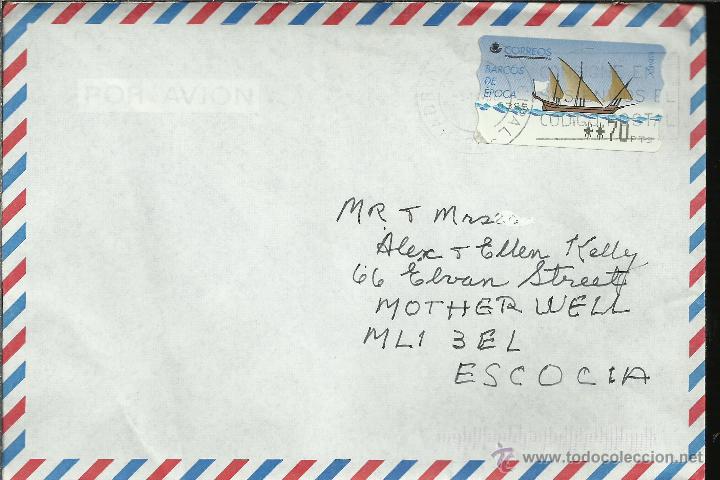 CORREOS
BARCOS
DE
EPOCA
**70
PTS
POR AVION
MR & Mrs
Alex & Ellen Kelly
66 Elvan Street
MOTHERWELL
ML1 3EL
ESCOCIA
www.todocoleccion.net